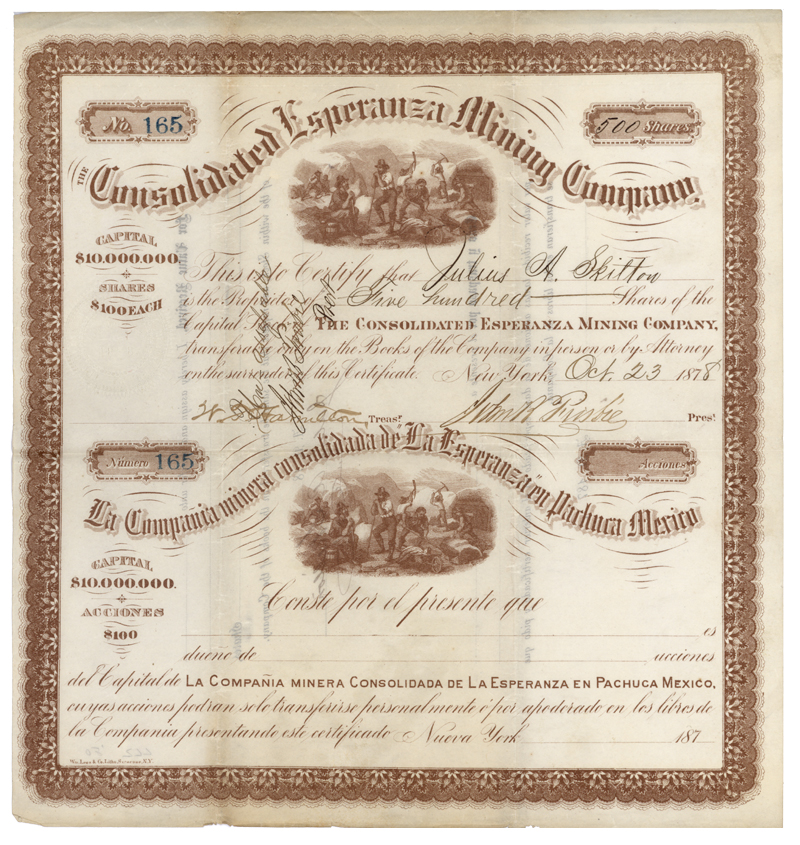 No. 165
500 Shares
THE Consolidated Esperanza Mining Company.
CAPITAL
$10.000.000.
SHARES
$100 EACH
This is to Certify that Julius A. Skitton
is the Proprietor of Five hundred Shares of the
Capital THE CONSOLIDATED ESPERANZA MINING COMPANY,
transferable only on the Books of the Company in person or by Attorney
on the surrender of this Certificate. New York Oct. 23 1878
Hamilton Treasr.
John R Prest.
Número 165
Acciones
La Compañia minera consolidada de "La Esperanza" en Pachuca Mexico
CAPITAL
$10.000.000.
ACCIONES
$100
Conste por el presente que
es
dueño de acciones
del Capital de LA COMPAÑIA MINERA CONSOLIDADA DE LA ESPERANZA EN PACHUCA MEXICO,
cuyas acciones podran solo transferirse personalmente ó por apoderado en los libros de
la Compania presentando este certificado Nueva York 187